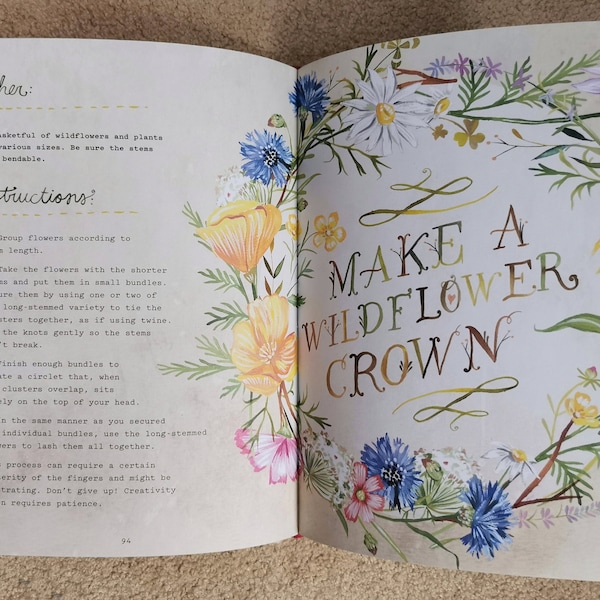 her:
asketful of wildflowers and plants
various sizes. Be sure the stems
bendable.
structions:
Group flowers according to
s length.
Take the flowers with the shorter
ms and put them in small bundles.
ure them by using one or two of
long-stemmed variety to tie the
sters together, as if using twine.
the knots gently so the stems
't break.
Finish enough bundles to
ate a circlet that, when
clusters overlap, sits
ely on the top of your head.
n the same manner as you secured
individual bundles, use the long-stemmed
wers to lash them all together.
s process can require a certain
erity of the fingers and might be
trating. Don't give up! Creativity
en requires patience.
94
MAKE A
WILDFLOWER
CROWN